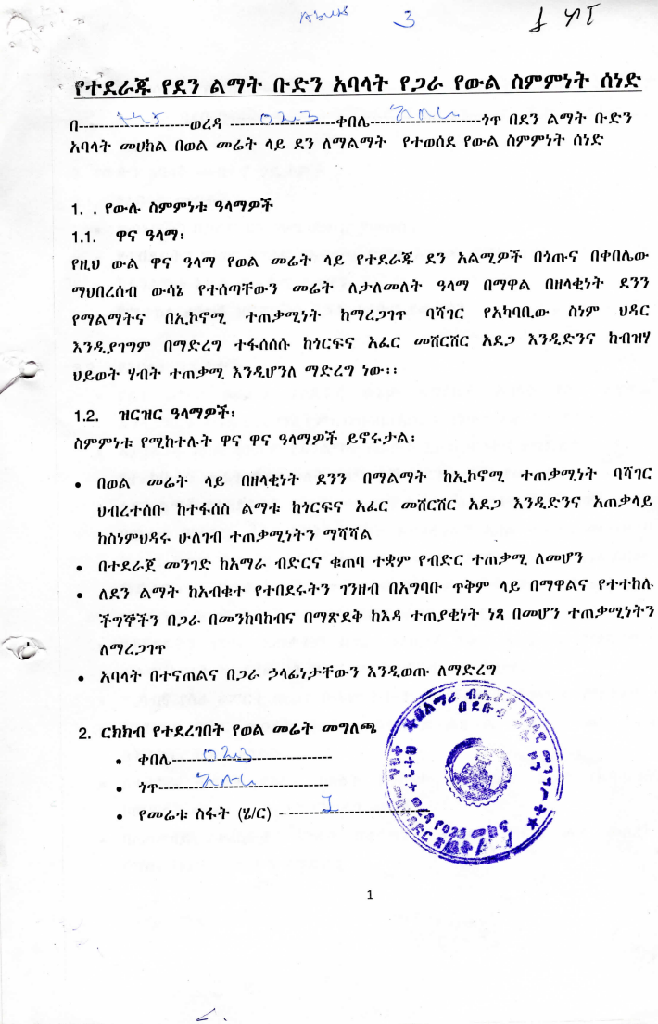 3
የተደራጁ የደን ልማት ቡድን አባላት የጋራ የውል ስምምነት ሰነድ
በ---------------------ወረዳ --------------------ቀበሌ---------------------ጎጥ በደን ልማት ቡድን
አባላት መሀከል በወል መሬት ላይ ደን ለማልማት የተወሰደ የውል ስምምነት ሰነድ
1. . የውሉ ስምምነቱ ዓላማዎች
1.1. ዋና ዓላማ፡
የዚህ ውል ዋና ዓላማ የወል መሬት ላይ የተደራጁ ደን አልሚዎች በጎጡና በቀበሌው
ማህበረሰብ ውሳኔ የተሰጣቸውን መሬት ለታለመለት ዓላማ በማዋል በዘላቂነት ደንን
የማልማትና በኢኮኖሚ ተጠቃሚነት ከማረጋገጥ ባሻገር የአካባቢው ስነም ህዳር
እንዲያገግም በማድረግ ተፋሰሰሱ ከጎርፍና አፈር መሸርሸር አደጋ እንዲድንና ከብዝሃ
ህይወት ሃብት ተጠቃሚ እንዲሆንለ ማድረግ ነው፡፡
1.2. ዝርዝር ዓላማዎች፡
ስምምነቱ የሚከተሉት ዋና ዋና ዓላማዎች ይኖሩታል፡
• በወል መሬት ላይ በዘላቂነት ደንን በማልማት ከኢኮኖሚ ተጠቃሚነት ባሻገር
ህብረተሰቡ ከተፋሰስ ልማቱ ከጎርፍና አፈር መሸርሸር አደጋ እንዲድንና አጠቃላይ
ከስነምህዳሩ ሁለገብ ተጠቃሚነትን ማሻሻል
• በተደራጀ መንገድ ከአማራ ብድርና ቁጠባ ተቋም የብድር ተጠቃሚ ለመሆን
• ለደን ልማት ከአብቁተ የተበደሩትን ገንዘብ በአግባቡ ጥቅም ላይ በማዋልና የተተከሉ
ችግኞችን በጋራ በመንከባከብና በማጽደቅ ከእዳ ተጠያቂነት ነጻ በመሆን ተጠቃሚነትን
ለማረጋገጥ
• አባላት በተናጠልና በጋራ ኃላፊነታቸውን እንዲወጡ ለማድረግ
2. ርክክብ የተደረገበት የወል መሬት መግለጫ
• ቀበሌ------------------------------
• ጎጥ--------------------------------
• የመሬቱ ስፋት (ሄ/ር) - ---------------------------
1